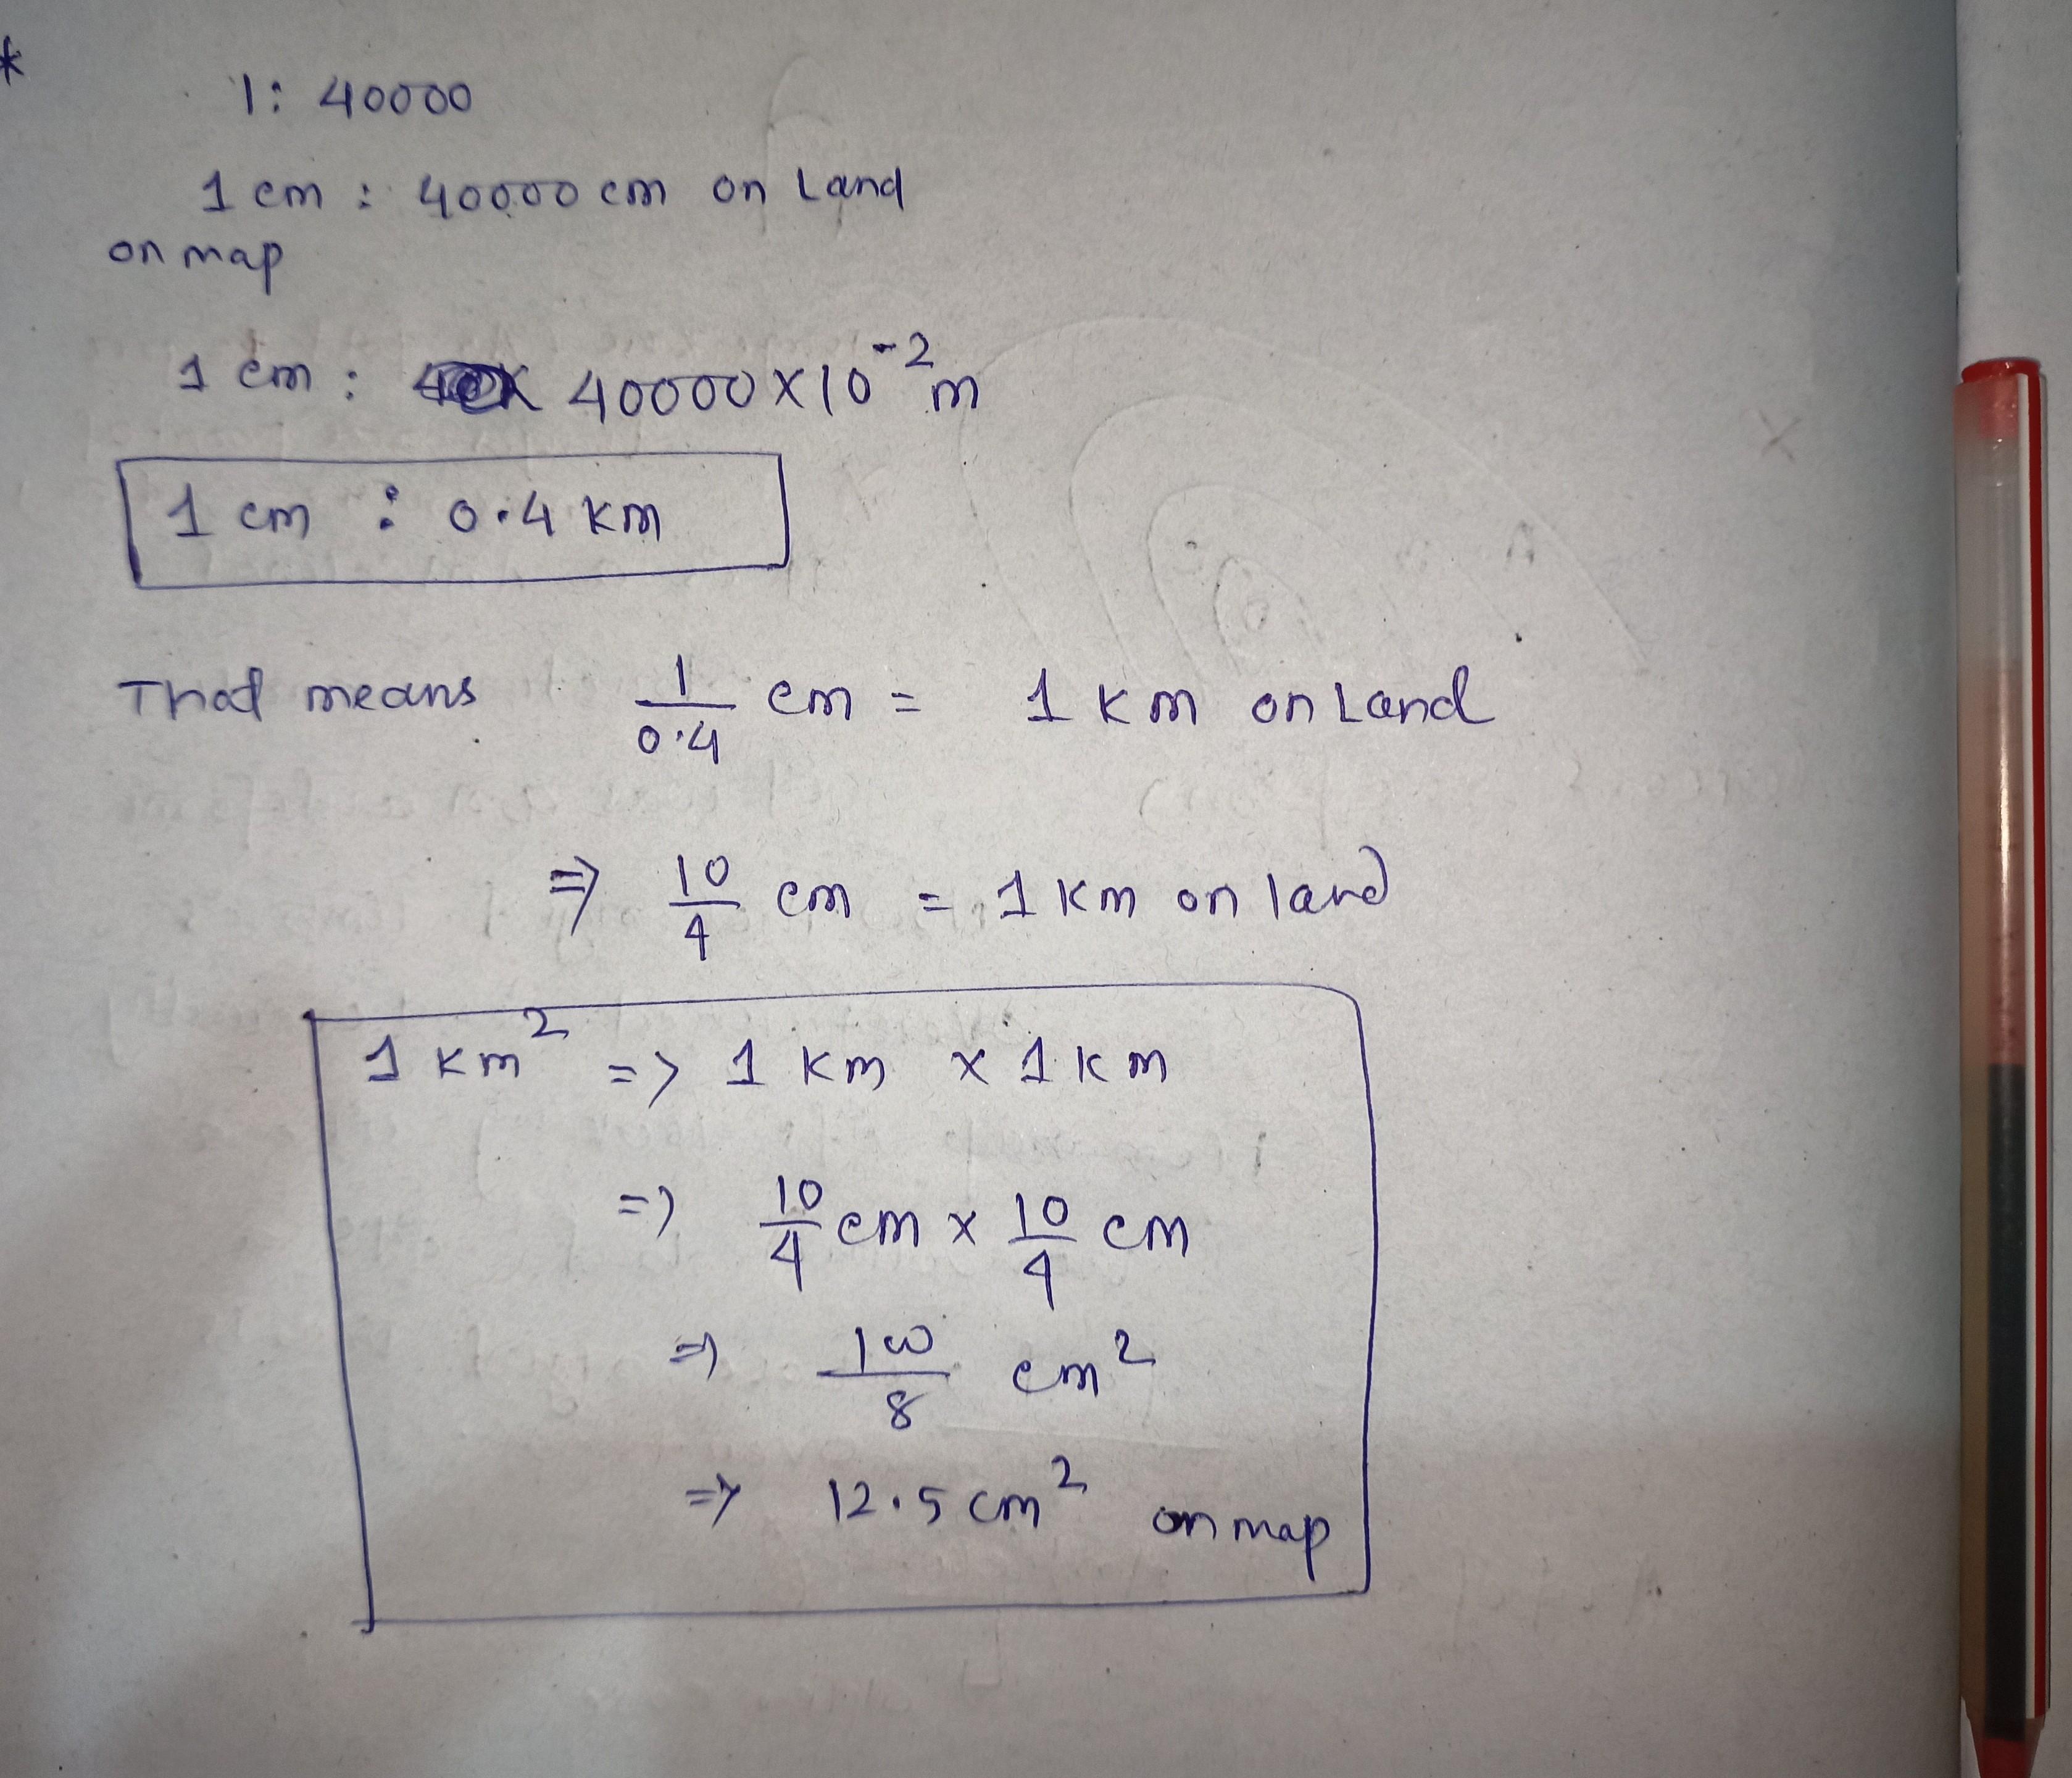 *
1: 40000
1 cm : 40000 cm on Land
on map
1 cm : 40000 x 10⁻² m
1 cm : 0.4 km
That means 1/0.4 cm = 1 km on Land
=> 10/4 cm = 1 km on land
1 km² => 1 km x 1 km
=> 10/4 cm x 10/4 cm
=> 100/8 cm²
=> 12.5 cm² on map